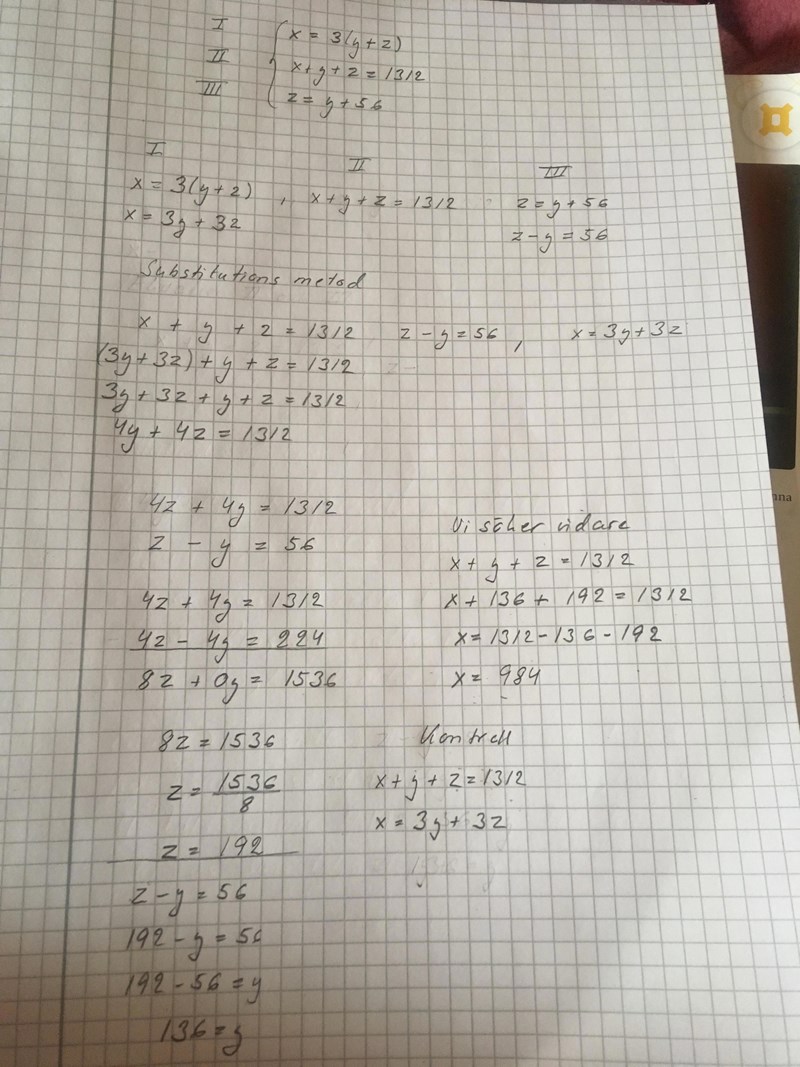 I
x = 3(y+z)
II
x+y+z=1312
III
z = y+56
I
II
III
x = 3(y+z) , x+y+z=1312
z=y+56
x = 3y+3z
z-y=56
Substitutions metod
x + y + z = 1312
z-y=56 ,
x=3y+3z
(3y+3z)+y+z=1312
3y+3z+y+z=1312
4y+4z=1312
4z + 4y = 1312
z - y = 56
4z + 4y = 1312
4z - 4y = 224
8z + 0y = 1536
8z=1536
z= 1536
8
z= 192
z-y=56
192-y=56
192-56=y
136=y
Vi söker vidare
x+y+z=1312
x+136+192=1312
x=1312-136-192
x= 984
Kontroll
x+y+z=1312
x=3y+3z